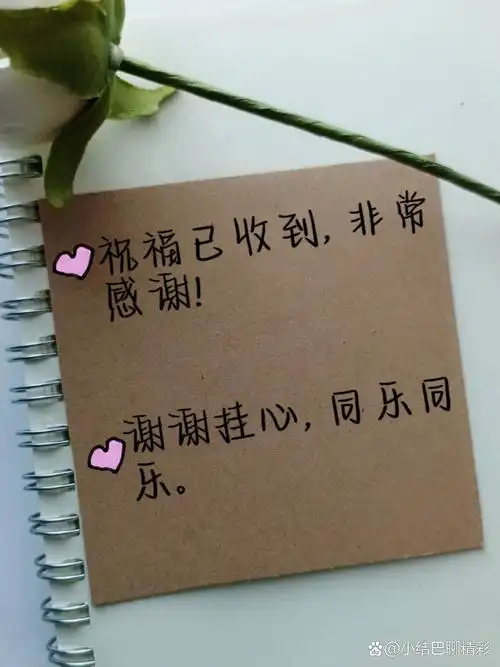 祝福已收到,非常
感谢!
谢谢挂心,同乐同
乐。
小结巴聊精彩